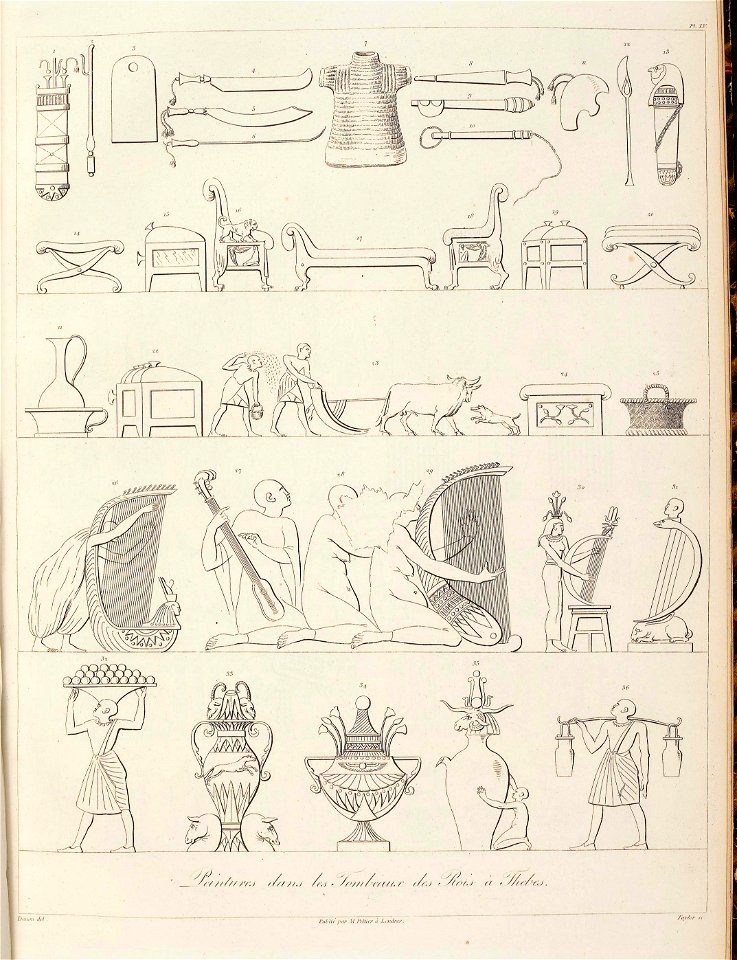 Pl. IV.
1
2
3
4
5
6
7
8
9
10
11
12
13
14
15
16
17
18
19
20
21
22
23
24
25
26
27
28
29
30
31
32
33
34
35
36
Peintures dans les Tombeaux des Rois à Thebes.
Denon del.
Publié par M. Peltier à Londres.
Taylor sc